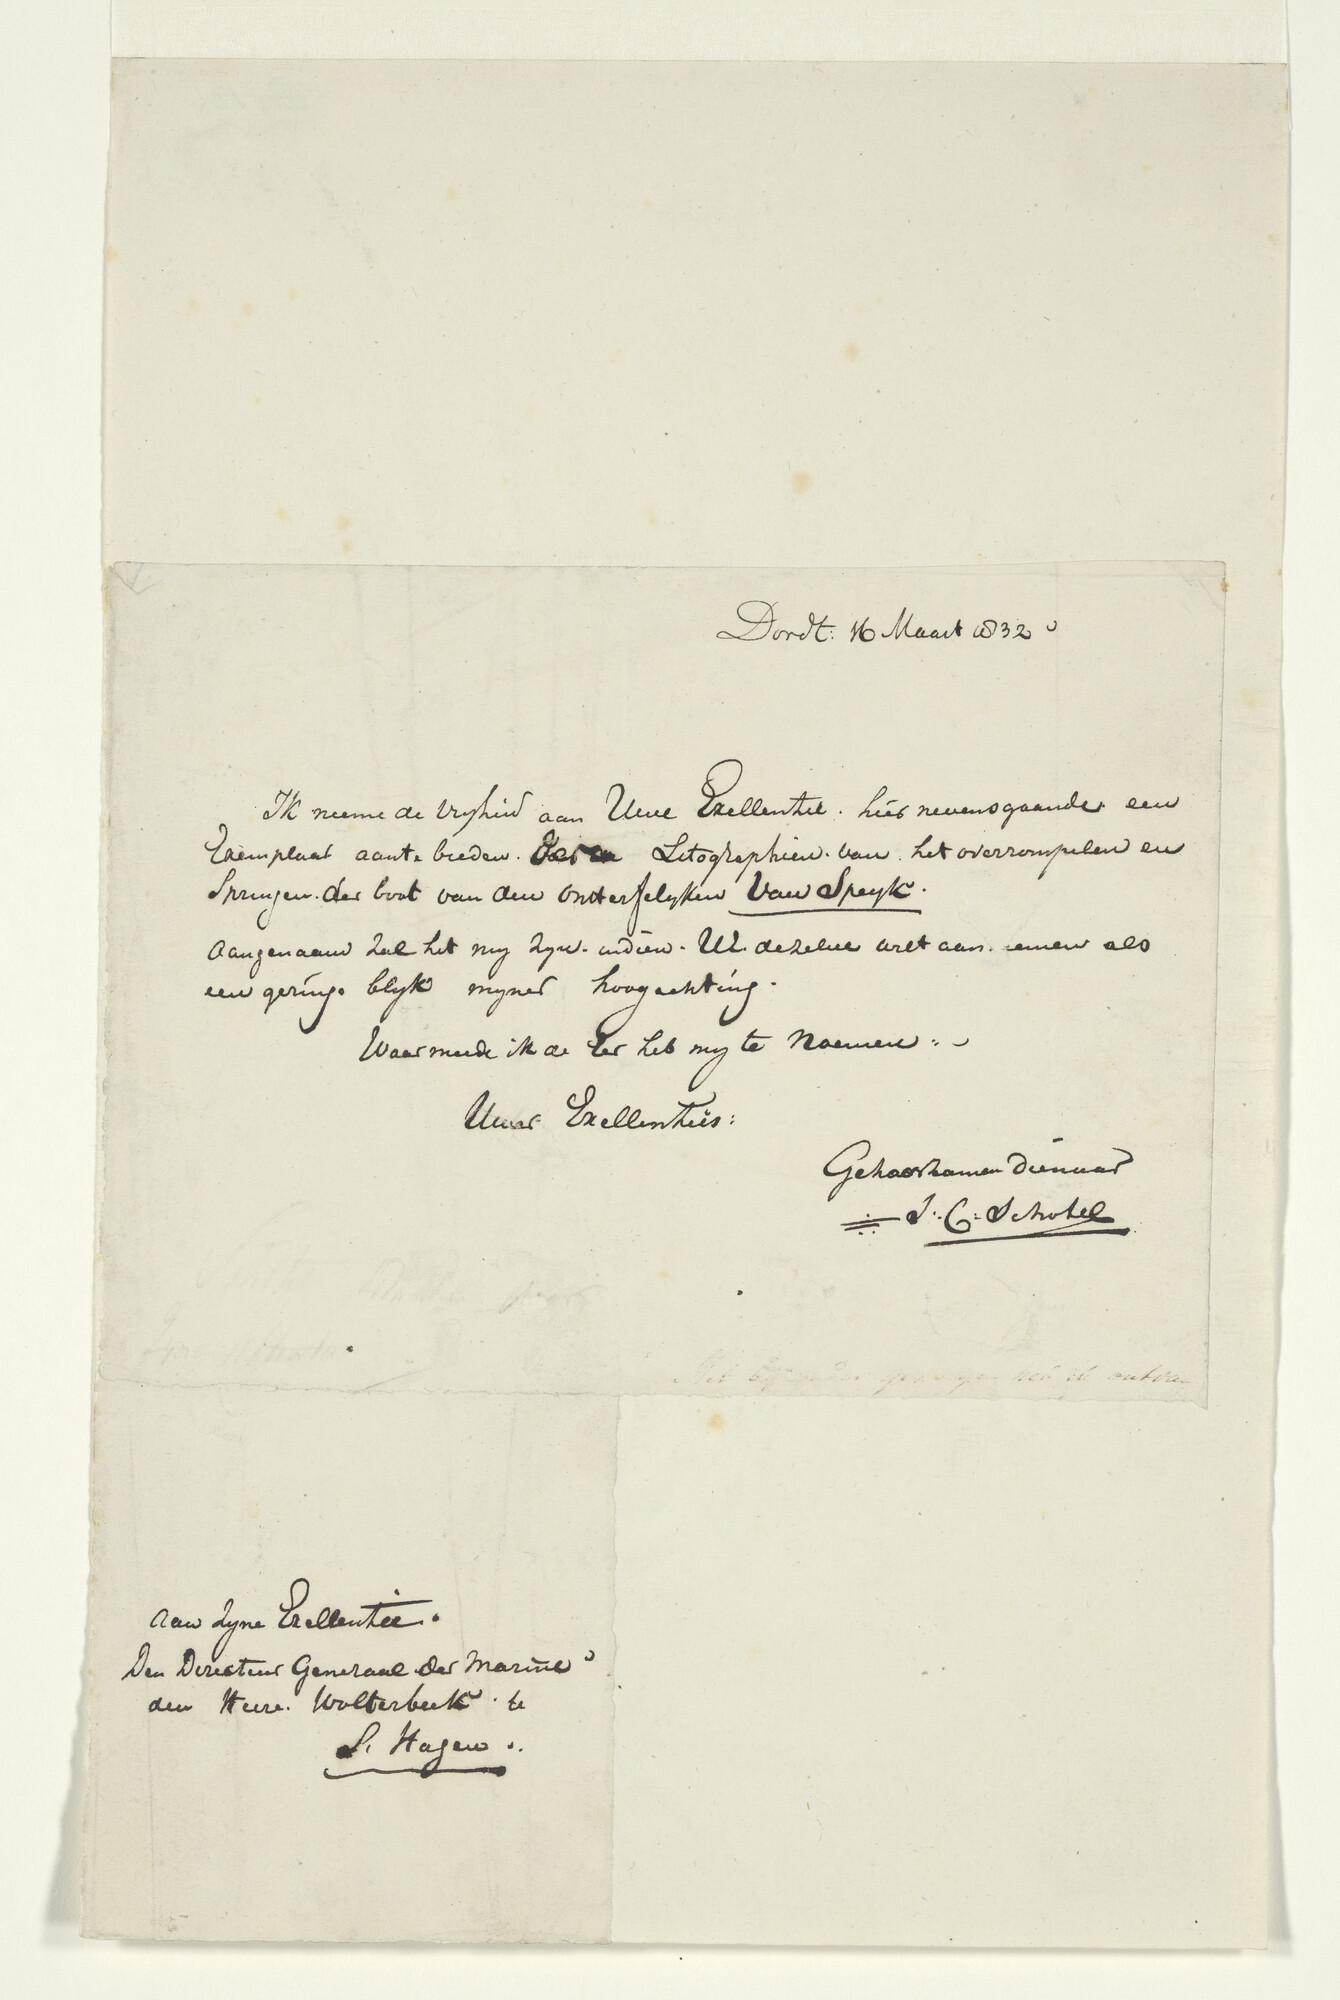 Dordt: 16 Maart 1832
Ik neeme de vryheid aan Uwe Exellentie. hier nevensgaande. een
Exemplaar aante bieden. Litographien. van. het overrompelen en
Springen. der boot van den onsterfelyken Van Speyk.
Aangenaam zal het my zyn. indien. U. dezelve wilt aan. nemen als
een geringe blyk myner hoogachting.
Waarmeede ik de Eer heb my te Noemen. :
Uwer Exellenties:
Gehoorzamen Dienaar
J. C. Schotel
Het gevangen heb ik ontva
Aan Zyne Exellentie.
Den Directeur Generaal der Marine
den Heere. Wolterbeek. te
S. Hagen.